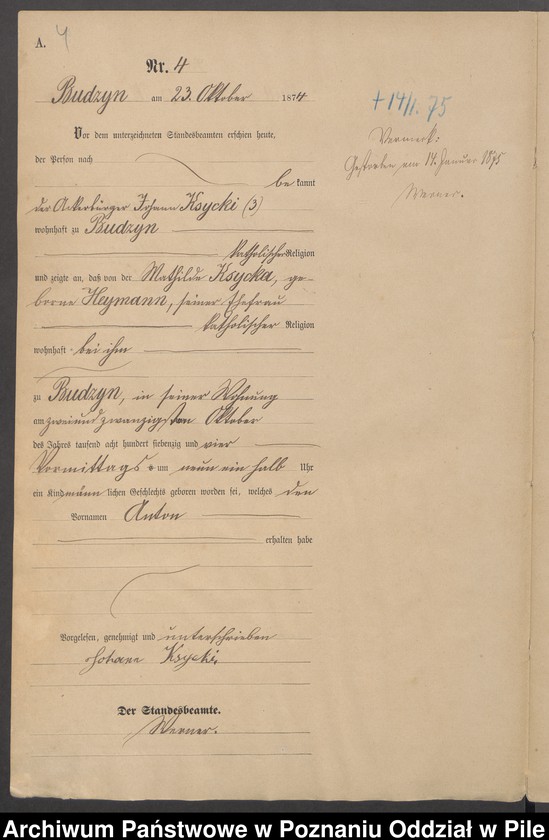 A.
4
Nr. 4
Budzyn am 23. Oktober 1874
Vor dem unterzeichneten Standesbeamten erschien heute,
der Person nach
bekannt
der Ackerbürger Johann Ksycki (3)
wohnhaft zu Budzyn
katholischer Religion
und zeigte an, daß von der Mathilde Ksycka, ge-
borne Heymann, seiner Ehefrau
katholischer Religion
wohnhaft bei ihm
zu Budzyn, in seiner Wohnung
am zweiundzwanzigsten Oktober
des Jahres tausend acht hundert siebenzig und vier
Vormittags um neun ein halb Uhr
ein Kind männlichen Geschlechts geboren worden sei, welches den
Vornamen Anton
erhalten habe
Vorgelesen, genehmigt und unterschrieben
Johann Ksycki.
Der Standesbeamte.
Werner.
+ 14/1. 75
Vermerk:
Gestorben am 14. Januar 1875
Werner.
Archiwum Państwowe w Poznaniu Oddział w Pile